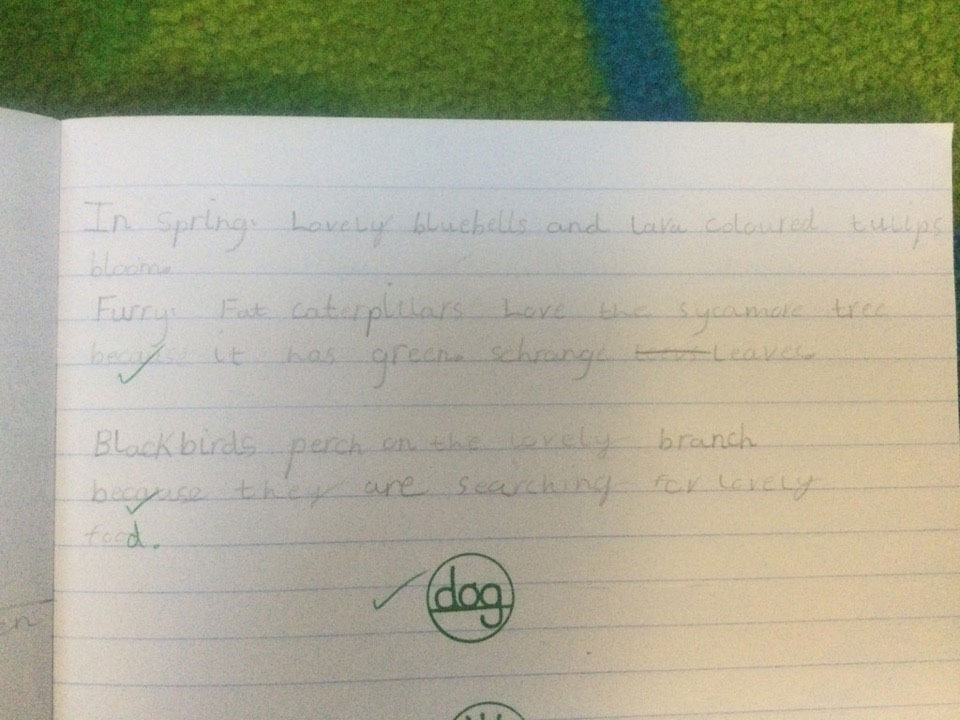 In Spring. Lovely bluebells and lava coloured tulips
bloom.
Furry. Fat caterplilars Love the sycamore tree
because it has green. schrange Leaves.
Blackbirds perch on the lovely branch
because they are searching for lovely
food.
dog
en